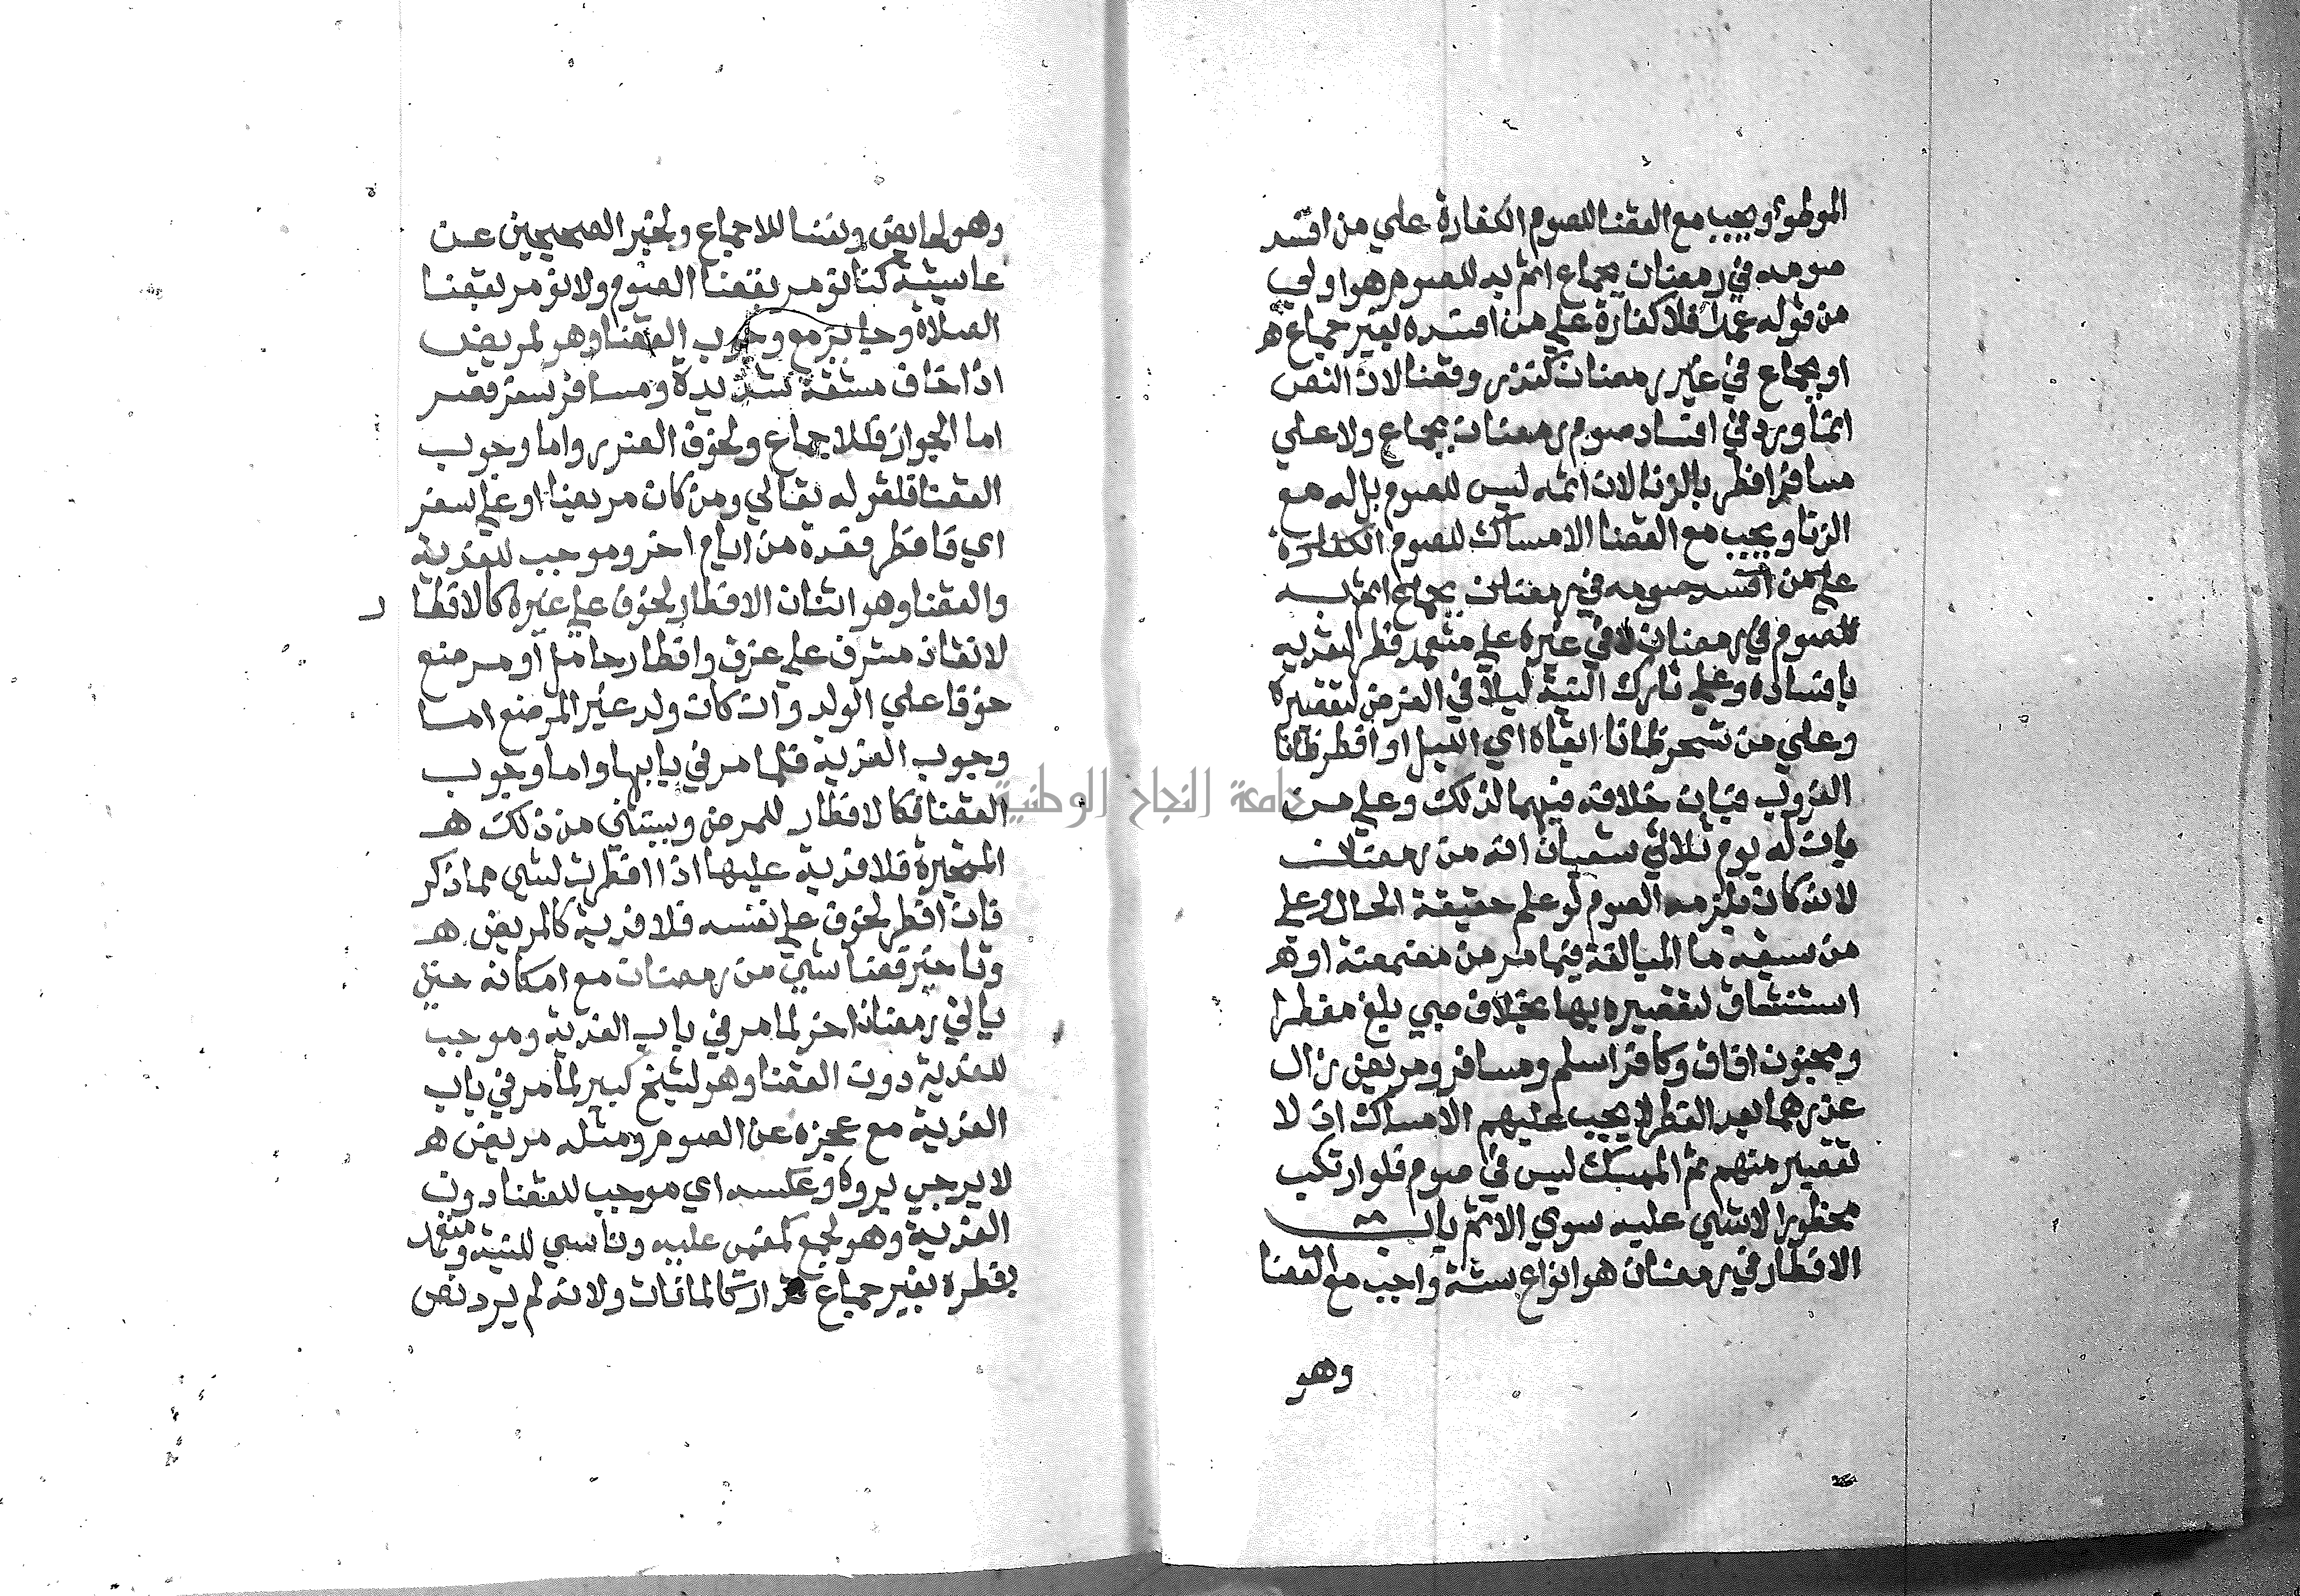 الموطوءة ويجب مع القضا للصوم الكفارة علي من افسد
صومه في رمضان بجماع اثم به للصوم هو اولي
من قوله عمدا فلا كفارة علي من افسده بغير جماع ه
او بجماع في غير رمضان كنذر وقضا لان النص
انما ورد في افساد صوم رمضان بجماع ولا علي
مسافر افطر بالزنا لان اثمه ليس للصوم بل له مع
الزنا ويجب مع القضا الامساك للصوم الكفارة
علي من افسد صومه في رمضان بجماع اثم به
للصوم في رمضان لا في غيره علي متعمد فطر لتعديه
بافساده وعلي تارك النية ليلا في الفرض لتقصيره
وعلي من تسحر ظانا ابقاه اي الليل او افطر ظانا
الغروب فبان خلافه فيهما لذلك وعلي من
بان له يوم ثلاثي شعبان انه من رمضان
لانه كان يلزمه الصوم لو علم حقيقة الحال وعلي
من سبقه ما المبالغة فيما مر من مضمضة او ه
استنشاق لتقصيره بها بخلاف صبي بلغ مفطرا
ومجنون افاق وكافر اسلم ومسافر ومريض زال
عذرهما بعد الفطر لا يجب عليهم الامساك اذ لا
تقصير منهم ثم الممسك ليس في صوم فلو ارتكب
محظورا لا شي عليه سوي الاثم باب
الافطار في رمضان هو انواع ستة واجب مع القضا
وهو
وهو لحايض ونفسا للاجماع ولخبر الصحيحين عن
عايشة كنا نؤمر بقضا الصوم ولا نؤمر بقضا
الصلاة وجايز مع وجوب القضا وهو لمريض
اذا خاف مشقة شديدة ومسافر سفر قصر
اما الجواز فللاجماع ولخوف الضرر واما وجوب
القضا فلقوله تعالي ومن كان مريضا او علي سفر
اي فافطر فعدة من ايام اخر وموجب للفدية
والقضا وهو اثنان الافطار لخوف علي غيره كالافطا ر
لانقاذ مشرف علي غرق وافطار حامل او مرضع
خوفا علي الولد وان كان ولد غير المرضع اما
وجوب الفدية فلما مر في بابها واما وجوب
القضا فكالافطار للمرض ويستثني من ذلك هـ
المتحيرة فلا فدية عليها اذا افطرت لشي مما ذكر
فان افطر لخوف علي نفسه فلا فدية كالمريض هـ
وتاخير قضا شي من رمضان مع امكانه حتي
ياتي رمضان اخر لما مر في باب الفدية وموجب
للفدية دون القضا وهو لشيخ كبير لما مر في باب
الفدية مع عجزه عن الصوم ومثله مريض ه
لا يرجي بروه وعكسه اي موجب للقضا دون
الفدية وهو لجمع كمغمي عليه وناسي للنية ومتعمد
بفطره بغير جماع كالمافات ولانه لم يرد نص
جامعة النجاح الوطنية